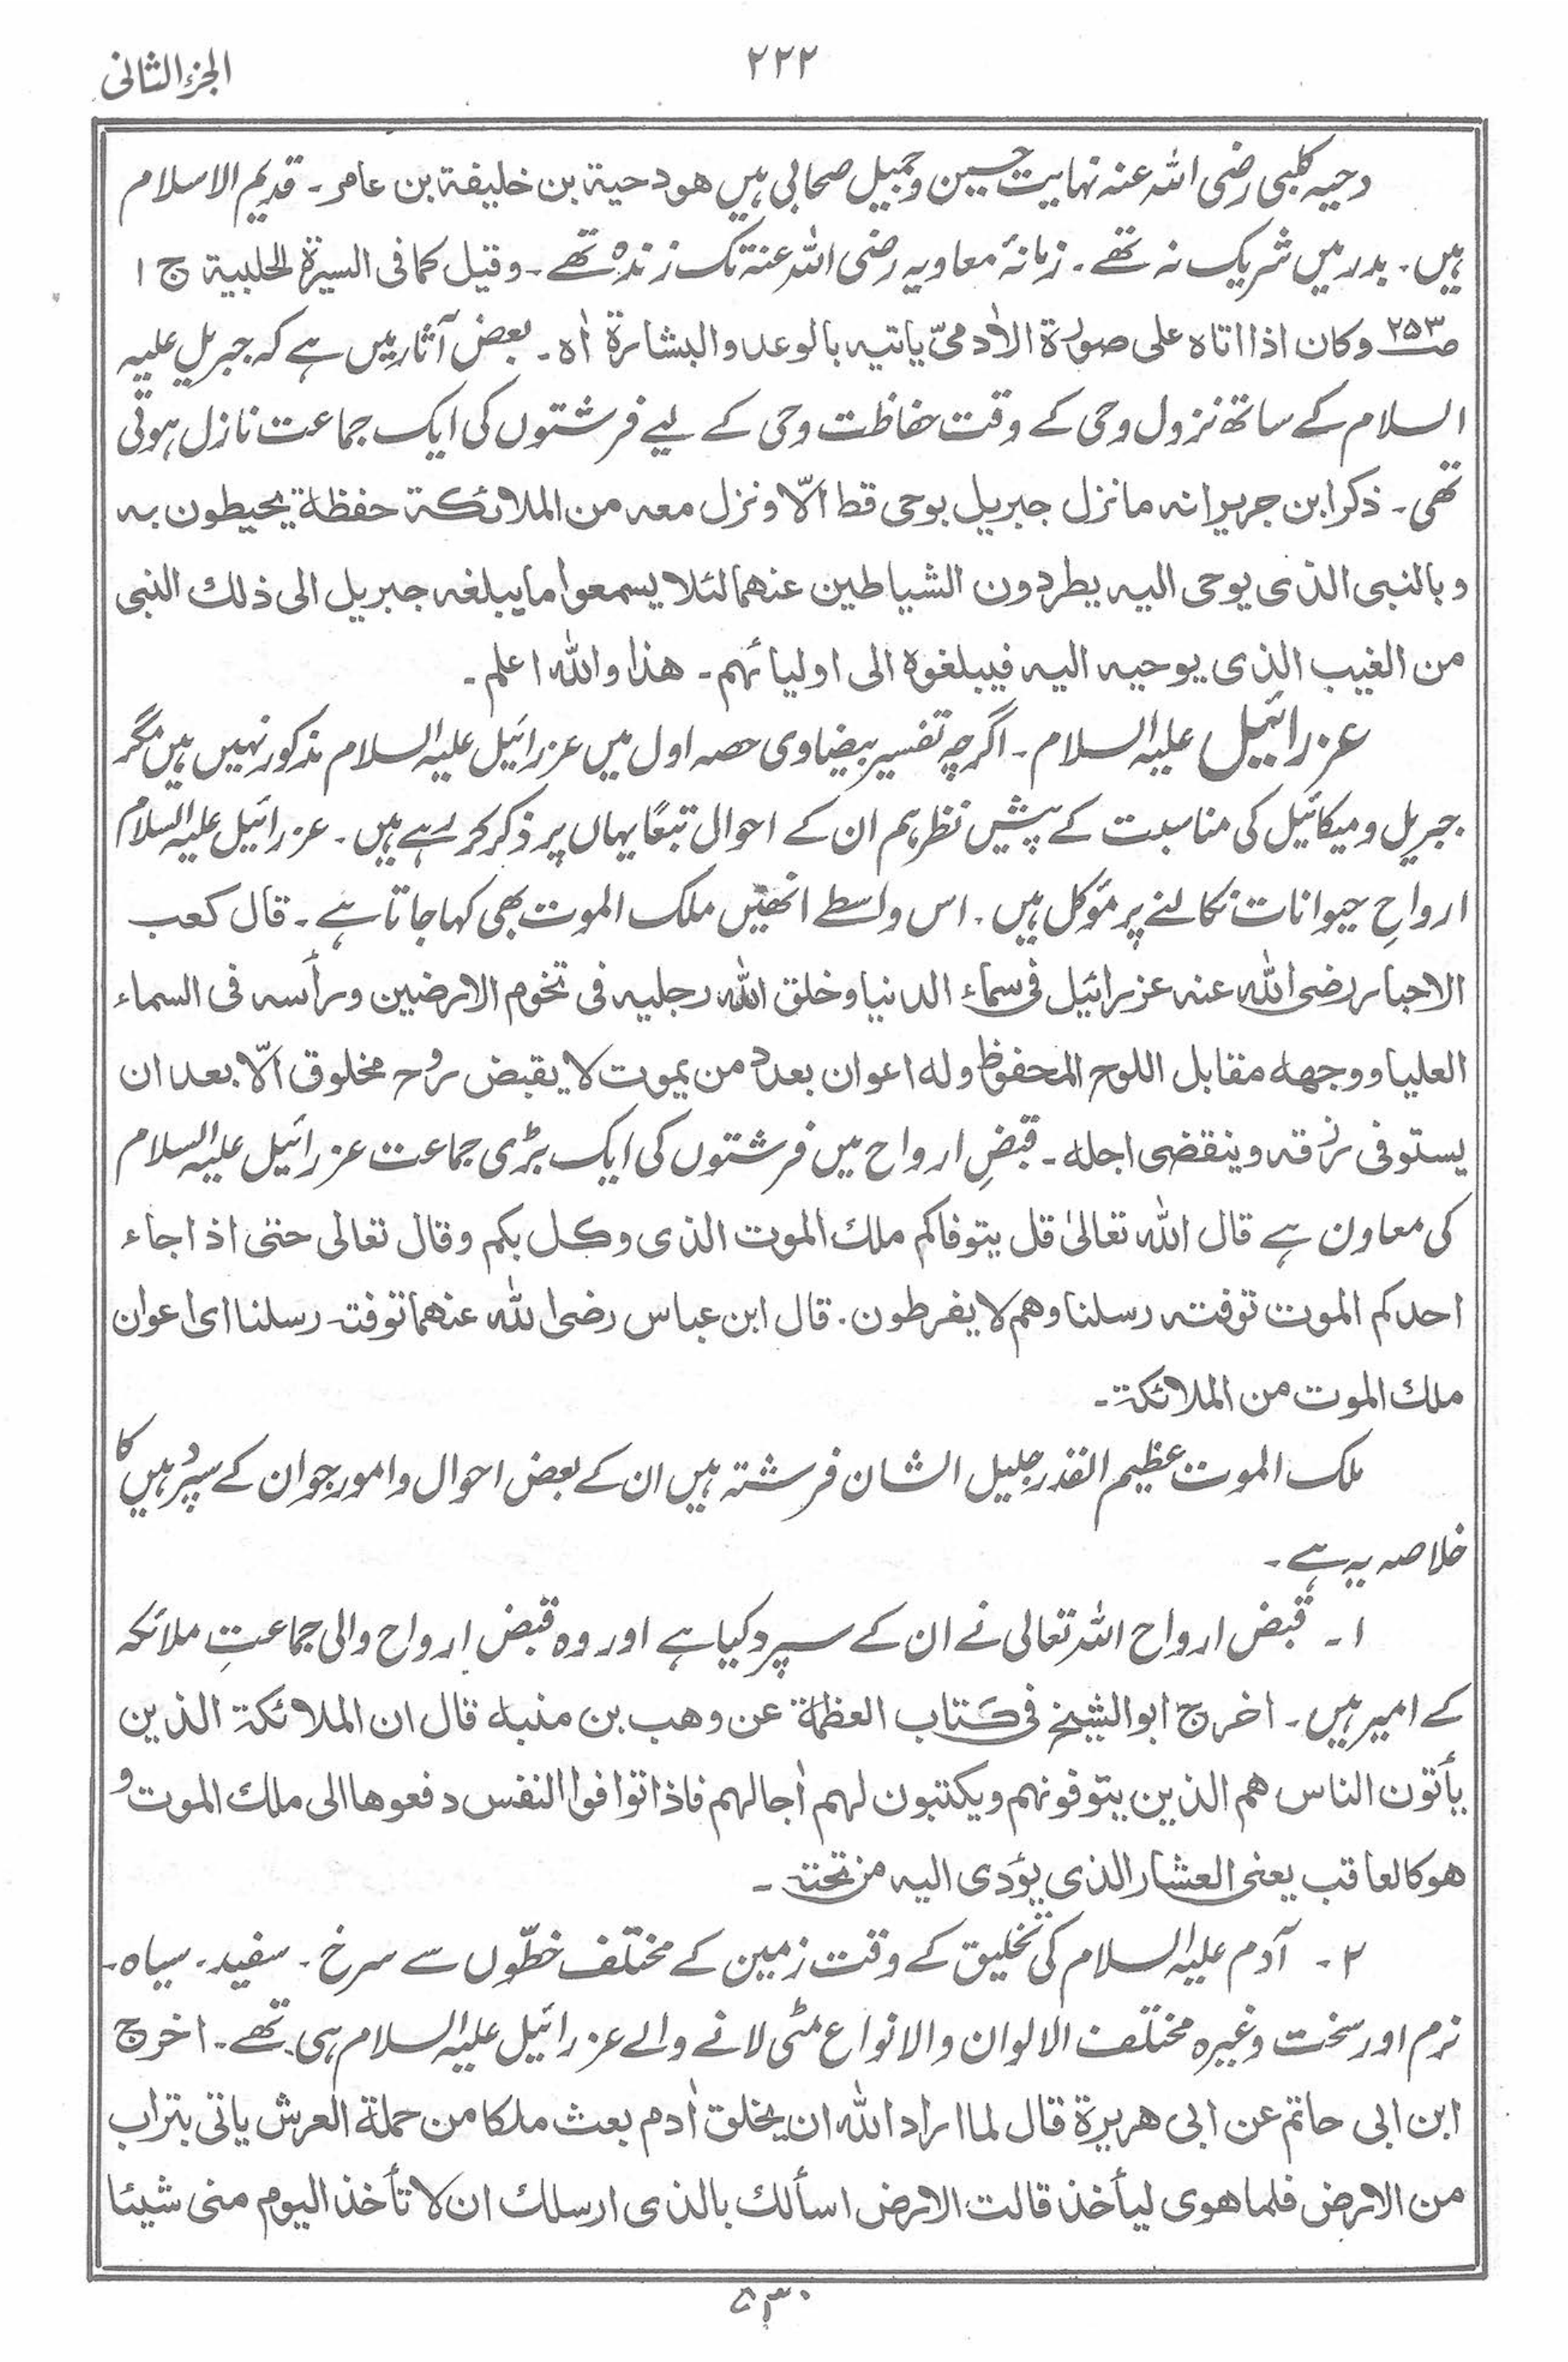 ۲۲۲
الجزء الثانی
دحیہ کلبی رضی اللہ عنہ نہایت حسین وجمیل صحابی ہیں هو دحیة بن خلیفة بن عامر ۔ قدیم الاسلام
ہیں ۔ بدر میں شریک نہ تھے ۔ زمانۂ معاویہ رضی اللہ عنہ تک زندہ تھے ۔ وقیل کما فی السیرة الحلبیة ج ۱
ص۲۵۳ وکان اذا اتاہ علی صورة الاٰدمیّ یاتیہ بالوعد والبشارة اٰہ ۔ بعض آثار میں ہے کہ جبریل علیہ
السلام کے ساتھ نزول وحی کے وقت حفاظت وحی کے لیے فرشتوں کی ایک جماعت نازل ہوتی
تھی ۔ ذکر ابن جریر انہ مانزل جبریل بوحی قط الّا ونزل معہ من الملائکة حفظة یحیطون بہ
وبالنبی الذی یوحی الیہ یطردون الشیاطین عنهما لئلا یسمعوا ما یبلغہ جبریل الی ذلك النبی
من الغیب الذی یوحیہ الیہ فیبلغوہ الی اولیائهم ۔ هذا واللہ اعلم ۔
عزرائیل علیہ السلام ۔ اگرچہ تفسیر بیضاوی حصہ اول میں عزرائیل علیہ السلام مذکور نہیں ہیں مگر
جبریل ومیکائیل کی مناسبت کے پیش نظر ہم ان کے احوال تبعًا یہاں پر ذکر کر رہے ہیں ۔ عزرائیل علیہ السلام
ارواحِ حیوانات نکالنے پر مؤکل ہیں ۔ اس واسطے انھیں ملک الموت بھی کہا جاتا ہے ۔ قال کعب
الاحبار رضی اللہ عنہ عزرائیل فی سماء الدنیا وخلق اللہ رجلیہ فی تخوم الارضین ورأسہ فی السماء
العلیا ووجهہ مقابل اللوح المحفوظ ولہ اعوان بعدد من یموت لا یقبض روح مخلوق الّا بعد ان
یستوفی رزقہ وینقضی اجلہ ۔ قبضِ ارواح میں فرشتوں کی ایک بڑی جماعت عزرائیل علیہ السلام
کی معاون ہے قال اللہ تعالیٰ قل یتوفاکم ملك الموت الذی وکل بکم وقال تعالی حتی اذا جاء
احدکم الموت توفتہ رسلنا وهم لا یفرطون ۔ قال ابن عباس رضی اللہ عنهما توفتہ رسلنا ای اعوان
ملك الموت من الملائکة ۔
ملک الموت عظیم القدر جلیل الشان فرشتہ ہیں ان کے بعض احوال وامور جو ان کے سپرد ہیں کا
خلاصہ یہ ہے ۔
۱ ۔ قبض ارواح اللہ تعالی نے ان کے سپرد کیا ہے اور وہ قبض ارواح والی جماعتِ ملائکہ
کے امیر ہیں ۔ اخرج ابو الشیخ فی کتاب العظمة عن وهب بن منبہ قال ان الملائکة الذین
یأتون الناس هم الذین یتوفونهم ویکتبون لهم اٰجالهم فاذا توافوا النفس دفعوها الی ملك الموت و
هو کالعاقب یعنی العشار الذی یؤدی الیہ من تحتہ ۔
۲ ۔ آدم علیہ السلام کی تخلیق کے وقت زمین کے مختلف خطّوں سے سرخ ۔ سفید ۔ سیاہ ۔
نرم اور سخت وغیرہ مختلف الالوان والانواع مٹی لانے والے عزرائیل علیہ السلام ہی تھے ۔ اخرج
ابن ابی حاتم عن ابی هریرة قال لما اراد اللہ ان یخلق اٰدم بعث ملکا من حملة العرش یاتی بتراب
من الارض فلما هوی لیأخذ قالت الارض اسألك بالذی ارسلك ان لا تأخذ الیوم منی شیئا